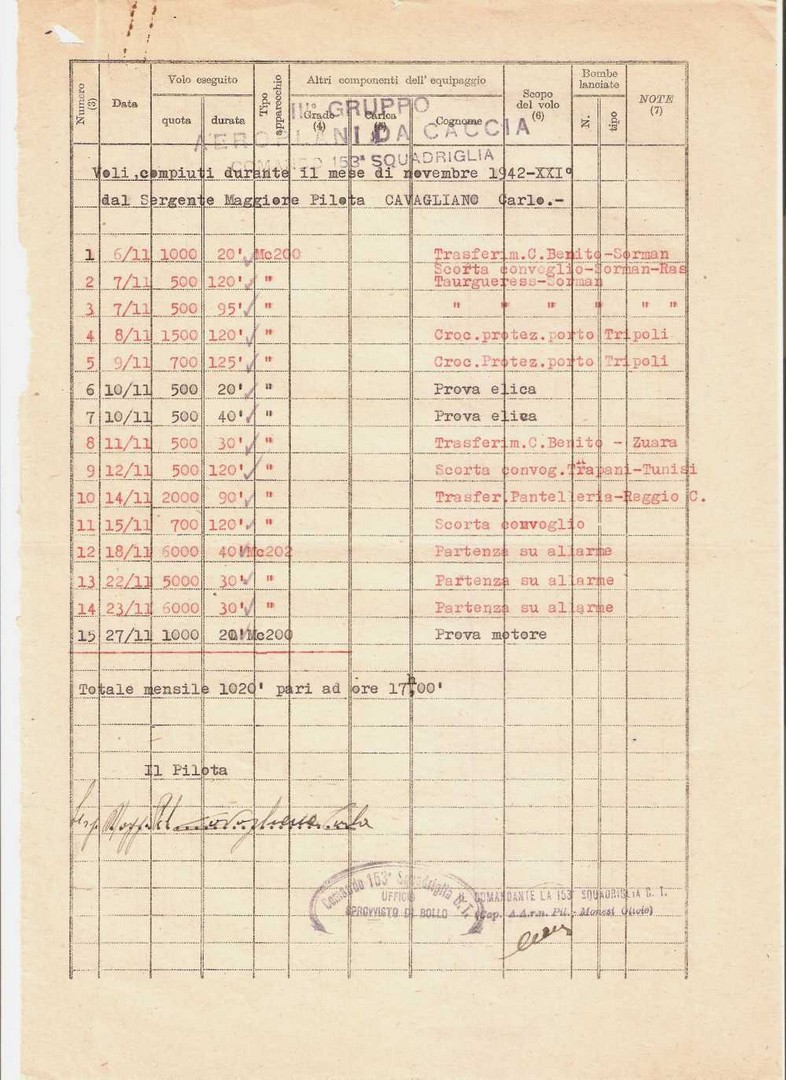 Numero (3) Data Volo eseguito quota durata Tipo apparecchio Altri componenti dell' equipaggio Grado (4) Carica (5) Cognome Scopo del volo (6) Bombe lanciate N. tipo NOTE (7)
III° GRUPPO
AEROPLANI DA CACCIA
COMANDO 153ª SQUADRIGLIA
Voli,compiuti durante il mese di novembre 1942-XXI°
dal Sergente Maggiore Pilota CAVAGLIANO Carlo.-
1 6/11 1000 20' Mc200 Trasferim.C.Benito-Sorman
Scorta convoglio-Sorman-Ras
2 7/11 500 120' " Taurgueress-Sorman
3 7/11 500 95' " " " " " " "
4 8/11 1500 120' " Croc.protez.porto Tripoli
5 9/11 700 125' " Croc.Protez.porto Tripoli
6 10/11 500 20' " Prova elica
7 10/11 500 40' " Prova elica
8 11/11 500 30' " Trasferim.C.Benito - Zuara
9 12/11 500 120' " Scorta convog.Trapani-Tunisi
10 14/11 2000 90' " Trasfer.Pantelleria-Reggio C.
11 15/11 700 120' " Scorta convoglio
12 18/11 6000 40' Mc202 Partenza su allarme
13 22/11 5000 30' " Partenza su allarme
14 23/11 6000 30' " Partenza su allarme
15 27/11 1000 20' Mc200 Prova motore
Totale mensile 1020' pari ad ore 17h00'
Il Pilota
Serg. Magg. Pil. Cavagliano Carlo
Comando 153ª Squadriglia C.T.
UFFICIO
SPROVVISTO DI BOLLO
COMANDANTE LA 153ª SQUADRIGLIA C. T.
(Cap. A.A.r.n. Pil. - Monesi Olivio)